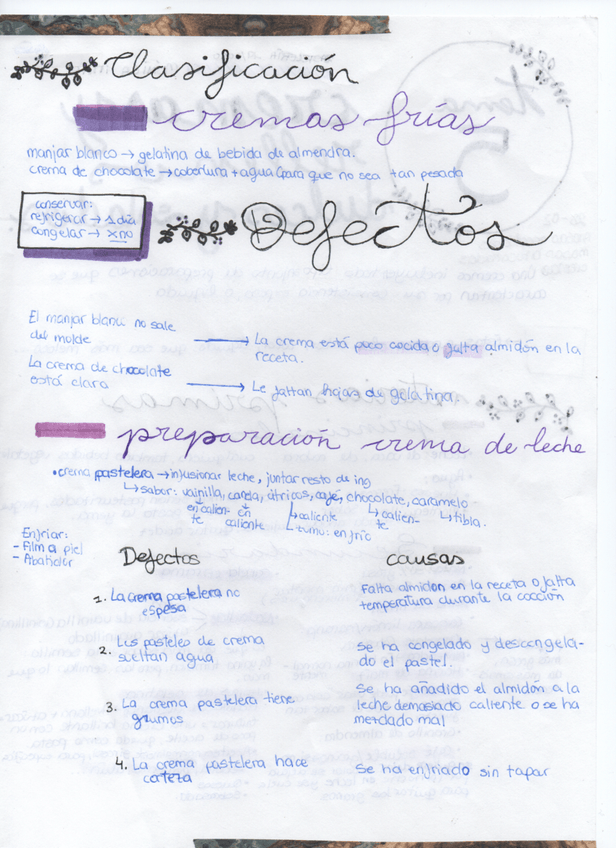 Clasificación
cremas frías
manjar blanco → gelatina de bebida de almendra.
crema de chocolate → cobertura + agua (para que no sea tan pesada
conservar:
refrigerar → 1 día
congelar → xno
Defectos
El manjar blanco no sale
del molde → La crema está poco cocida o falta almidón en la
receta.
La crema de chocolate
está clara → Le faltan hojas de gelatina.
preparación crema de leche
• crema pastelera → infusionar leche, juntar resto de ing
↳ sabor: vainilla, canela, cítricos, café, chocolate, caramelo
en calien- en ↳ caliente ↳ calien- ↳ tibia.
te caliente te
↳ zumo: en frío
Enfriar:
- Film a piel
- Abatidor
Defectos causas
1. La crema pastelera no
espesa
Falta almidon en la receta o falta
temperatura durante la cocción
2. Los pasteles de crema
sueltan agua
Se ha congelado y descongela-
do el pastel.
3. La crema pastelera tiene
grumos
Se ha añadido el almidón a la
leche demasiado caliente o se ha
mezclado mal
4. La crema pastelera hace
corteza
Se ha enfriado sin tapar